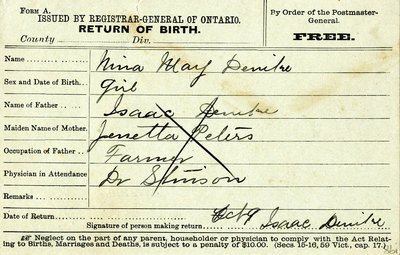 FORM A.
ISSUED BY REGISTRAR-GENERAL OF ONTARIO.
RETURN OF BIRTH.
County Div.
By Order of the Postmaster-General.
FREE.
Name Nina May Denike
Sex and Date of Birth Girl
Name of Father Isaac Denike
Maiden Name of Mother. Jenetta Peters
Occupation of Father Farmer
Physician in Attendance Dr Stinson
Remarks
Date of Return Oct 9 Isaac Denike
Signature of person making return
Neglect on the part of any parent, householder or physician to comply with the Act Relat-
ing to Births, Marriages and Deaths, is subject to a penalty of $10.00. (Secs 15-16, 59 Vict., cap. 17.)